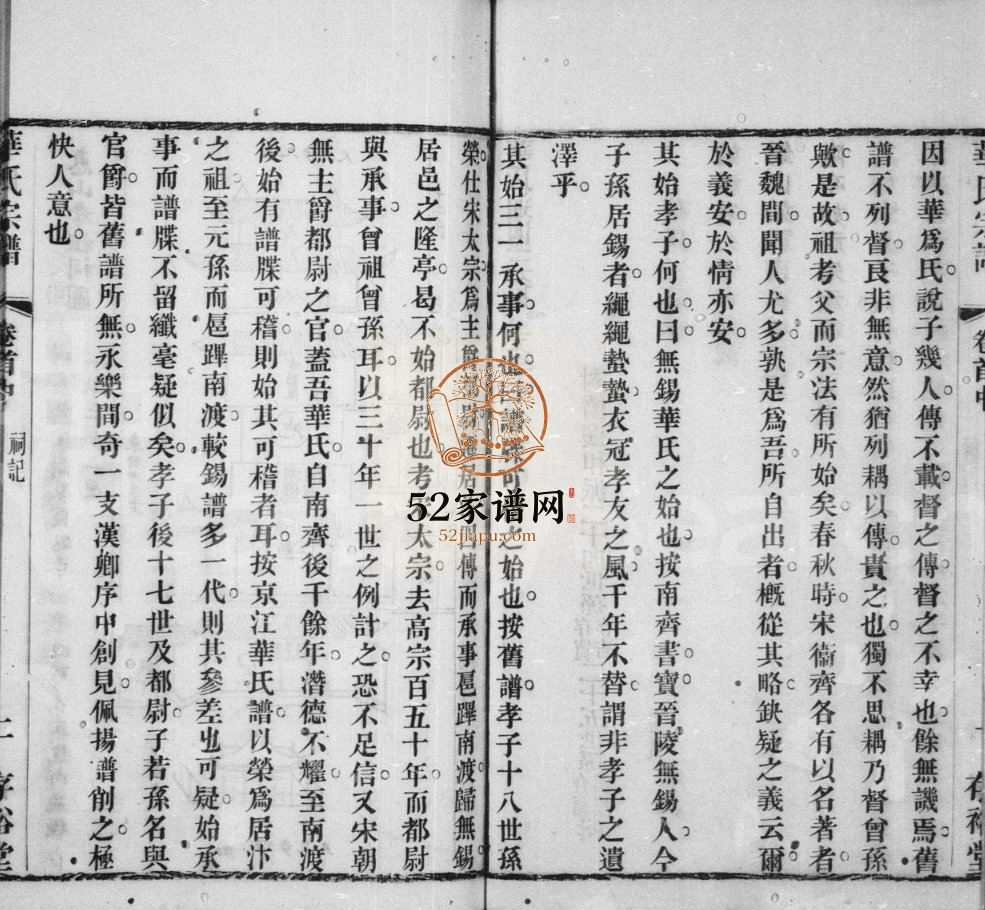 因以華爲氏說子幾人傳不載督之傳督之不幸也餘無譏焉舊
譜不列督良非無意然猶列耦以傳貴之也獨不思耦乃督曾孫
歟是故祖考父而宗法有所始矣春秋時宋衞齊各有以名著者
晉魏間聞人尤多孰是爲吾所自出者概從其略缺疑之義云爾
於義安於情亦安
其始孝子何也曰無錫華氏之始也按南齊書寶晉陵無錫人今
子孫居錫者繩繩蟄蟄衣冠孝友之風千年不替謂非孝子之遺
澤乎
其始三一承事何也 譜牒可 之始也按舊譜孝子十八世孫
榮仕宋太宗爲主爵都尉 居 四傳而承事扈蹕南渡歸無錫
居邑之隆亭曷不始都尉也考 太宗去高宗百五十年而都尉
與承事曾祖曾孫耳以三十年一世之例計之恐不足信又宋朝
無主爵都尉之官蓋吾華氏自南齊後千餘年潛德不耀至南渡
後始有譜牒可稽則始其可稽者耳按京江華氏譜以榮爲居汴
之祖至元孫而扈蹕南渡較錫譜多一代則其參差也可疑始承
事而譜牒不留纖毫疑似矣孝子後十七世及都尉子若孫名與
官爵皆舊譜所無永樂間奇一支漢卿序中創見佩揚譜削之極
快人意也
華氏宗譜
卷首中
祠記
存裕堂
52家谱网
52jiapu.com